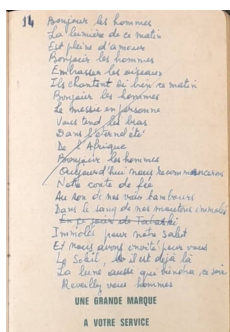 14 Bonjour les hommes
La lumière de ce matin
Est pleine d'amour
Bonjour les hommes
Embrasser les oiseaux
Ils chantent si bien ce matin
Bonjour les hommes
Le messie en personne
Vous tend les bras
Dans l'éternel été
De l'Afrique
Bonjour les hommes
Aujourd'hui nous recommencerons
Notre conte de fée
Au son de nos vrais tambours
Dans le sang de nos moutons immolés
En ce jour de Tabaski
Immolés pour notre salut
Et nous avons invité pour vous
Le Soleil, il est déjà là
La lune aussi qui viendra ce soir
Reveillez vous hommes
UNE GRANDE MARQUE
A VOTRE SERVICE